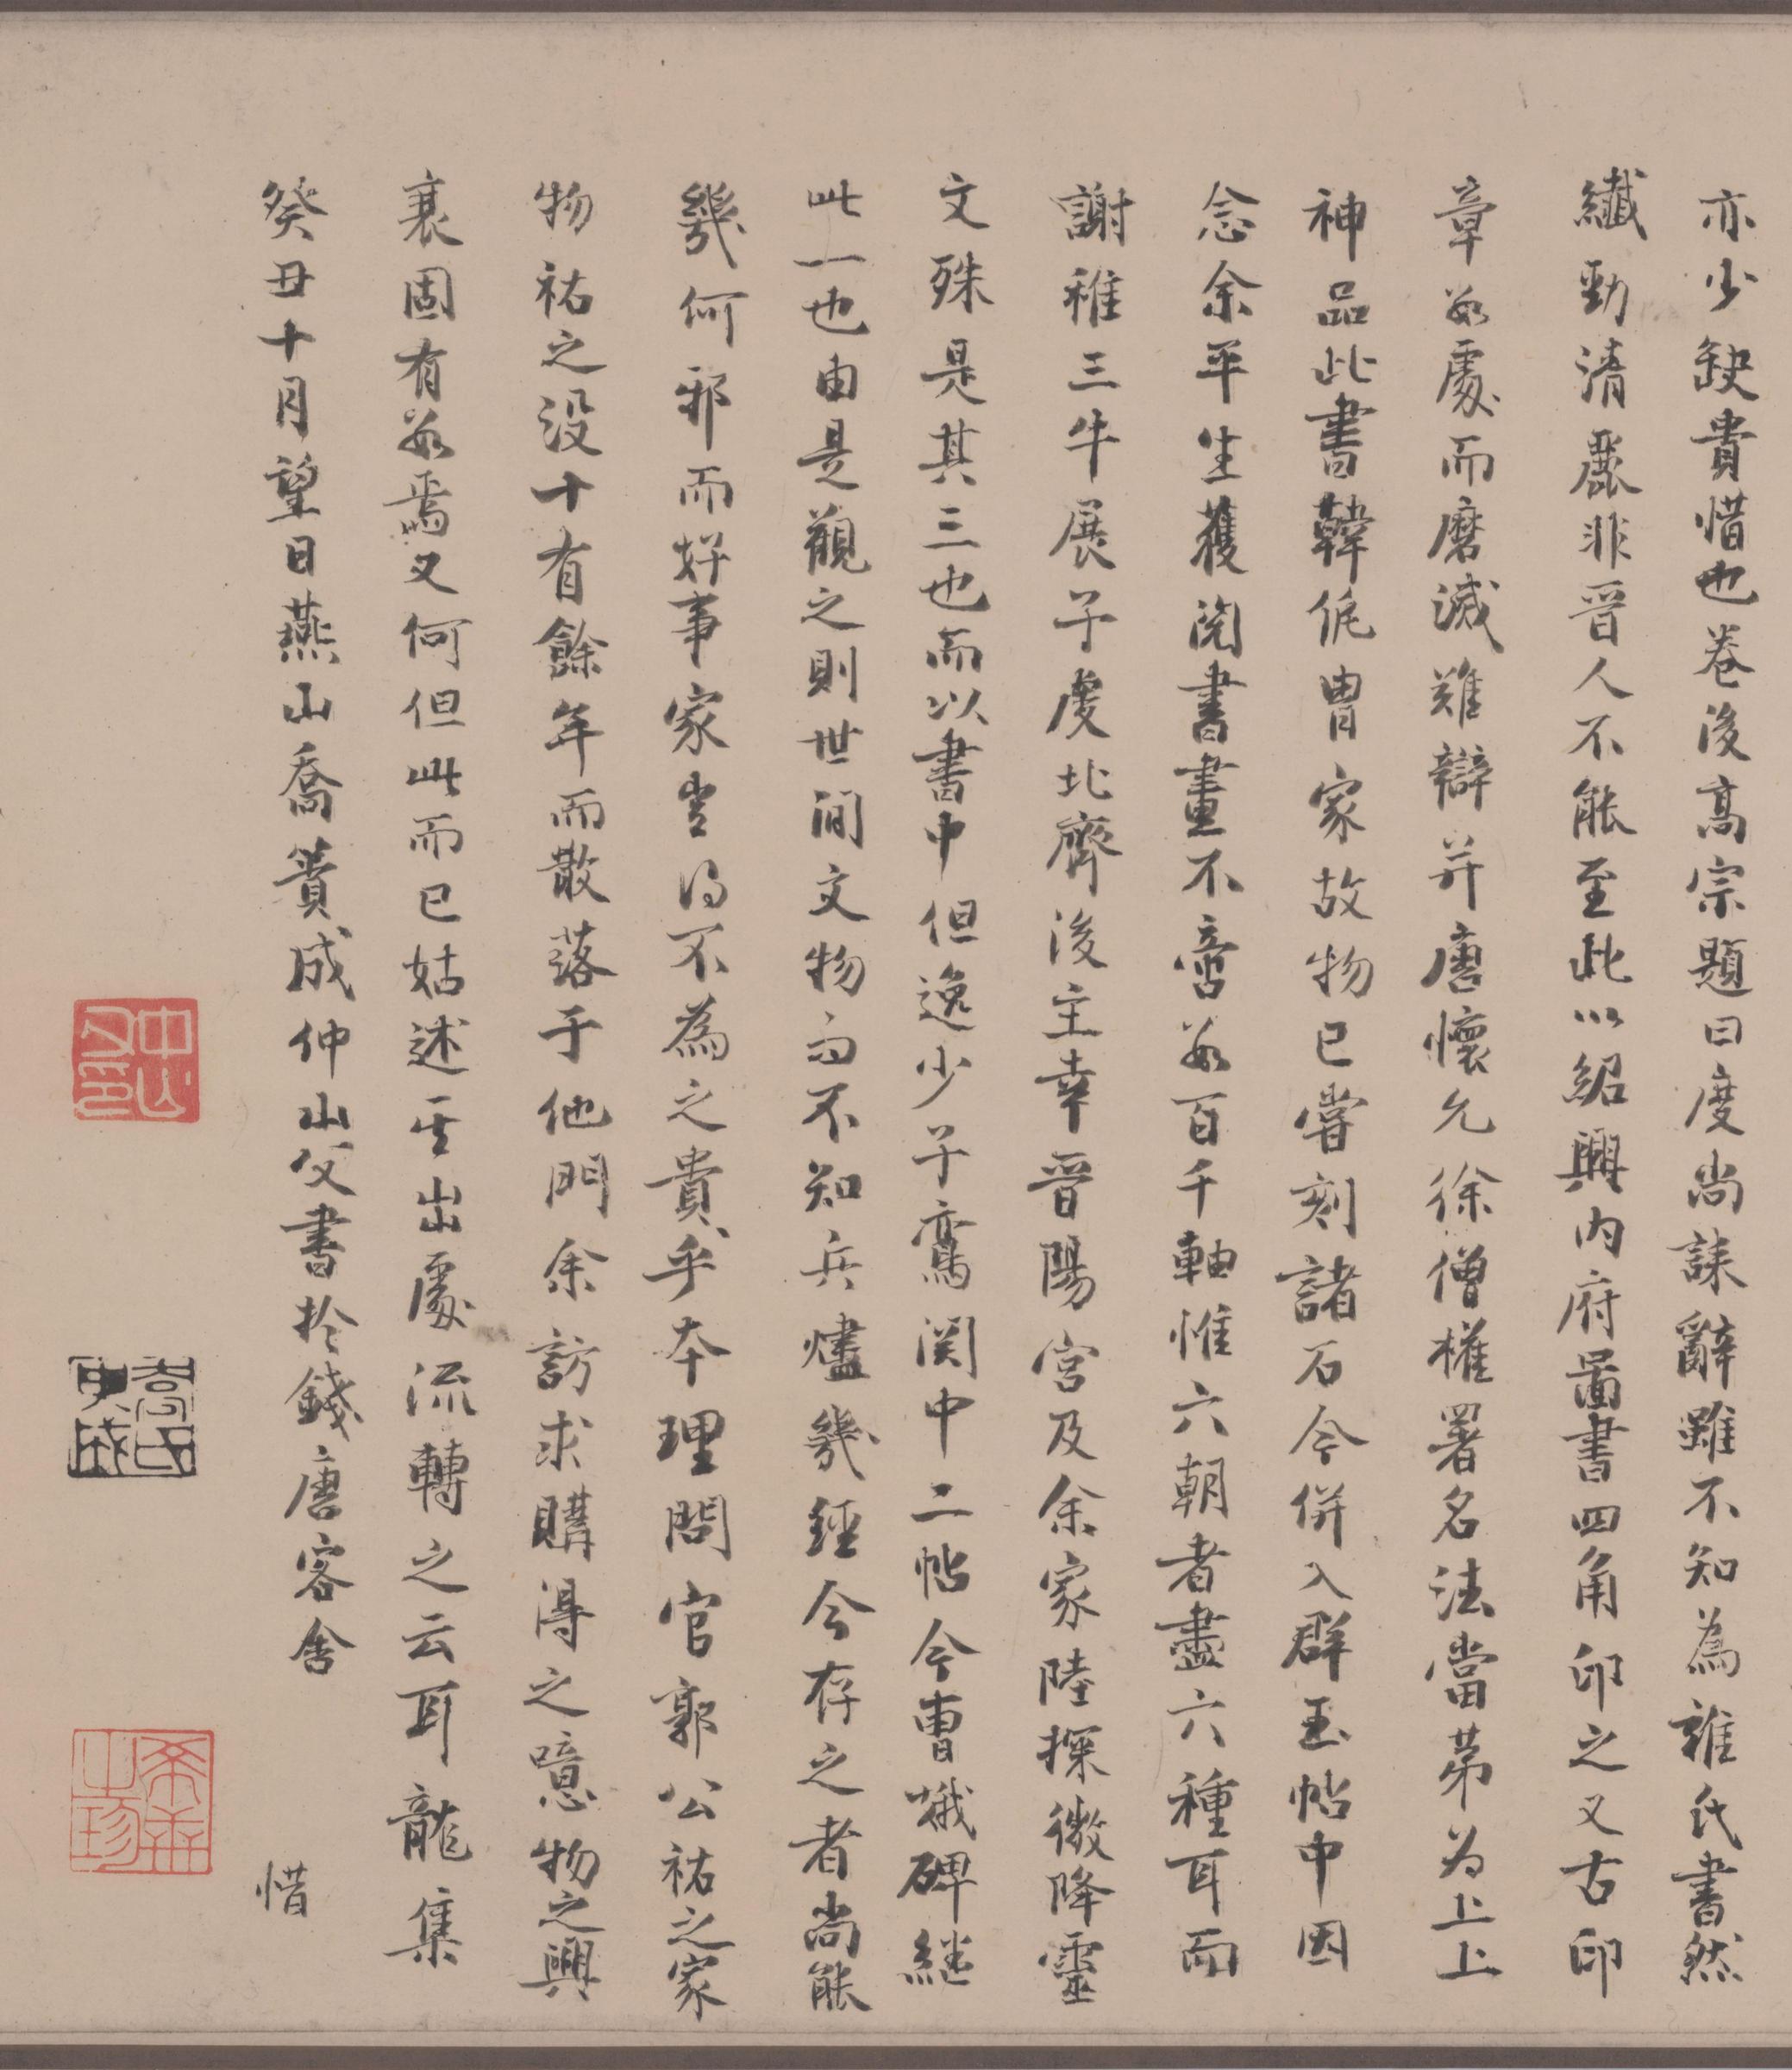 亦少缺貴惜也卷後高宗題曰度尚誄辭雖不知為誰氏書然
纖勁清麗非晉人不能至此以紹興內府啚書四角印之又古印
章數處而磨滅難辯并唐懷允徐僧權署名法當苐為上上
神品此書韓侂冑家故物已嘗刻諸石今併入群玉帖中因
念余平生獲閱書畫不啻數百千軸惟六朝者盡六種耳而
謝稚三牛展子虔北齊後主幸晉陽宮及余家陸探微降靈
文殊是其三也而以書中但逸少子鸞閟中二帖今曹娥碑継
此一也由是觀之則世間文物而不知兵燼幾經今存之者尚能
幾何邪而好事家豈得不為之貴乎本理問官郭公祐之家
物祐之没十有餘年而散落于他門余訪求購得之噫物之興
衰固有數焉又何但此而已姑述其出處流轉之云耳龍集
癸丑十月望日燕山喬簣成仲山父書於錢唐客舍
惜
中山父印
喬氏簣成
希世之珍